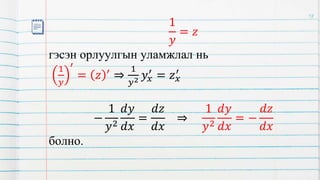 1/y = z
гэсэн орлуулгын уламжлал нь
(1/y)′ = (z)′ ⇒ 1/y² y′ₓ = z′ₓ
−1/y² dy/dx = dz/dx ⇒ 1/y² dy/dx = −dz/dx
болно.